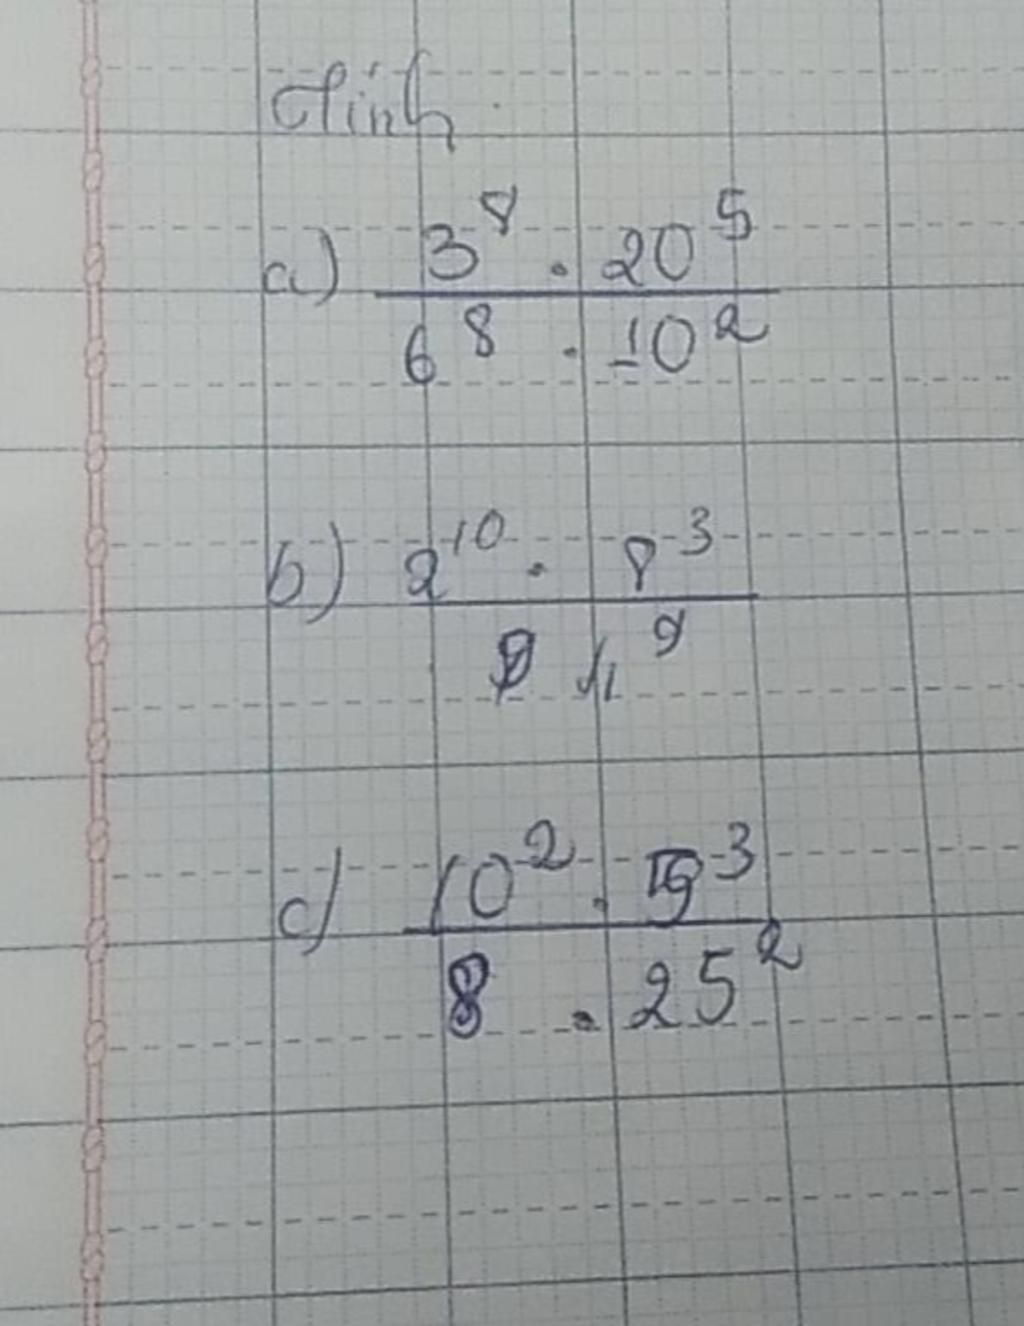 Tính
a) 3^8 . 20^5
6^8 . 10^2
b) 2^10 . 8^3
4^9
c) 10^2 . ^3
8 . 25^2